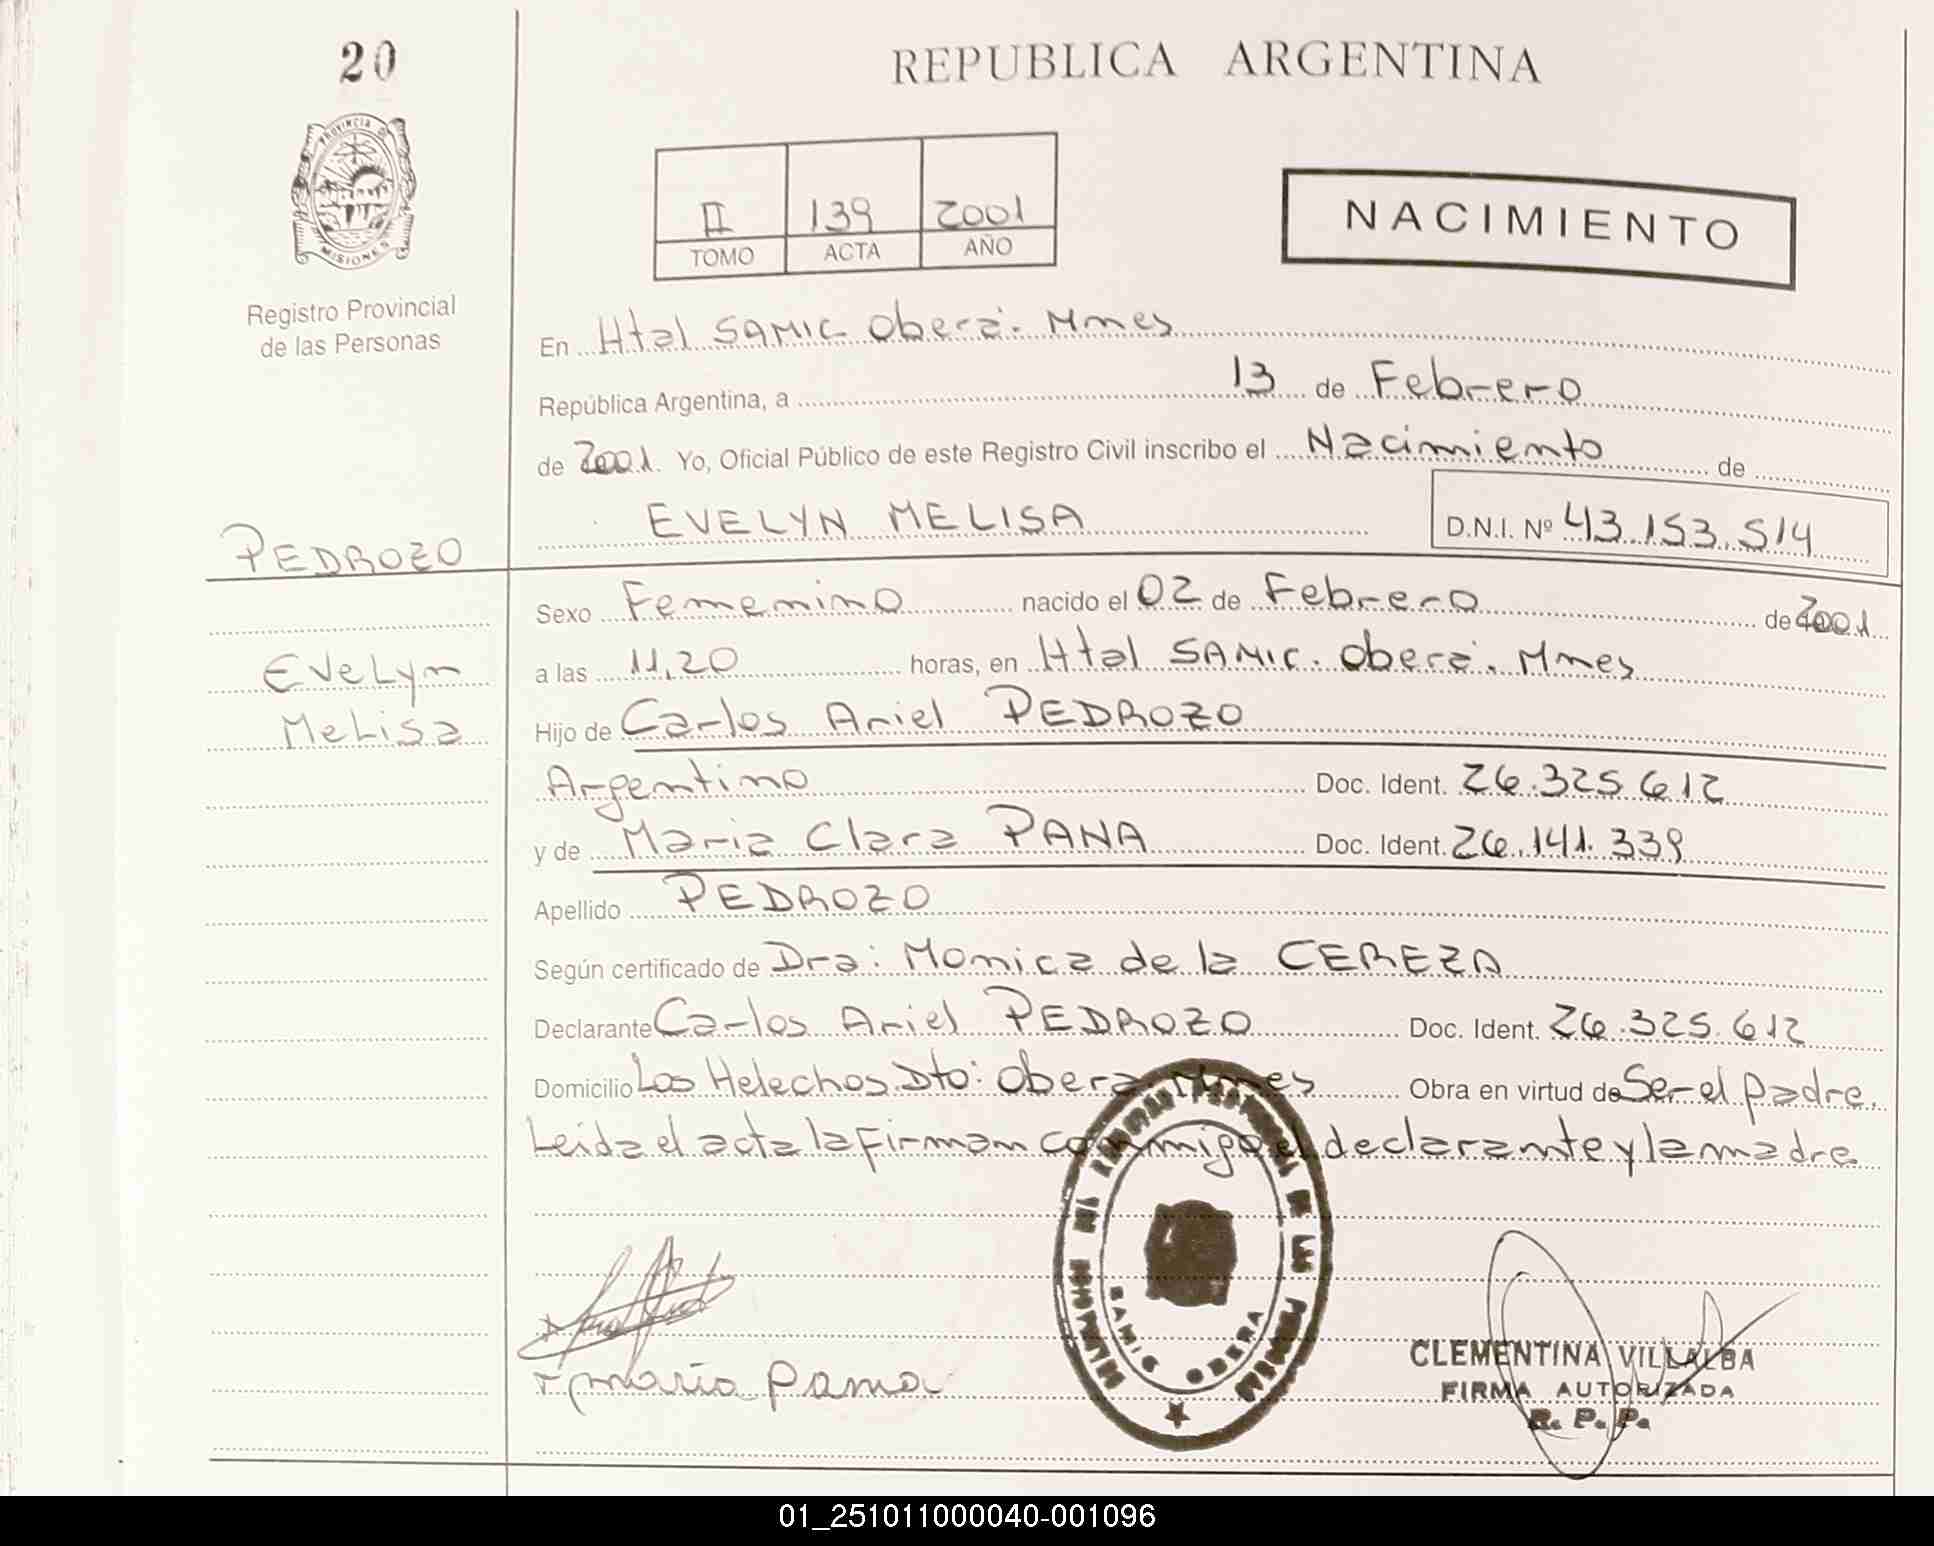 20
REPUBLICA ARGENTINA
PROVINCIA DE
MISIONES
Registro Provincial
de las Personas
II 139 2001
TOMO ACTA AÑO
NACIMIENTO
En Htal SAMIC Oberá. Mnes
República Argentina, a 13 de Febrero
de 2001. Yo, Oficial Público de este Registro Civil inscribo el Nacimiento de
EVELYN MELISA D.N.I. Nº 43.153.514
PEDROZO
Sexo Femenino nacido el 02 de Febrero de 2001
Evelyn
Melisa
a las 11,20 horas, en Htal SAMIC. Oberá. Mnes
Hijo de Carlos Ariel PEDROZO
Argentino Doc. Ident. 26.325.612
y de Maria Clara PANA Doc. Ident. 26.141.339
Apellido PEDROZO
Según certificado de Dra: Monica de la CEREZA
Declarante Carlos Ariel PEDROZO Doc. Ident. 26.325.612
Domicilio Los Helechos. Dto: Oberá. Mnes Obra en virtud de Ser el padre.
Leida el acta la firman conmigo el declarante y la madre
DE LAS PERSONAS
SAMIC OBERA
maria Pana
CLEMENTINA VILLALBA
FIRMA AUTORIZADA
R. P. P.
01_251011000040-001096